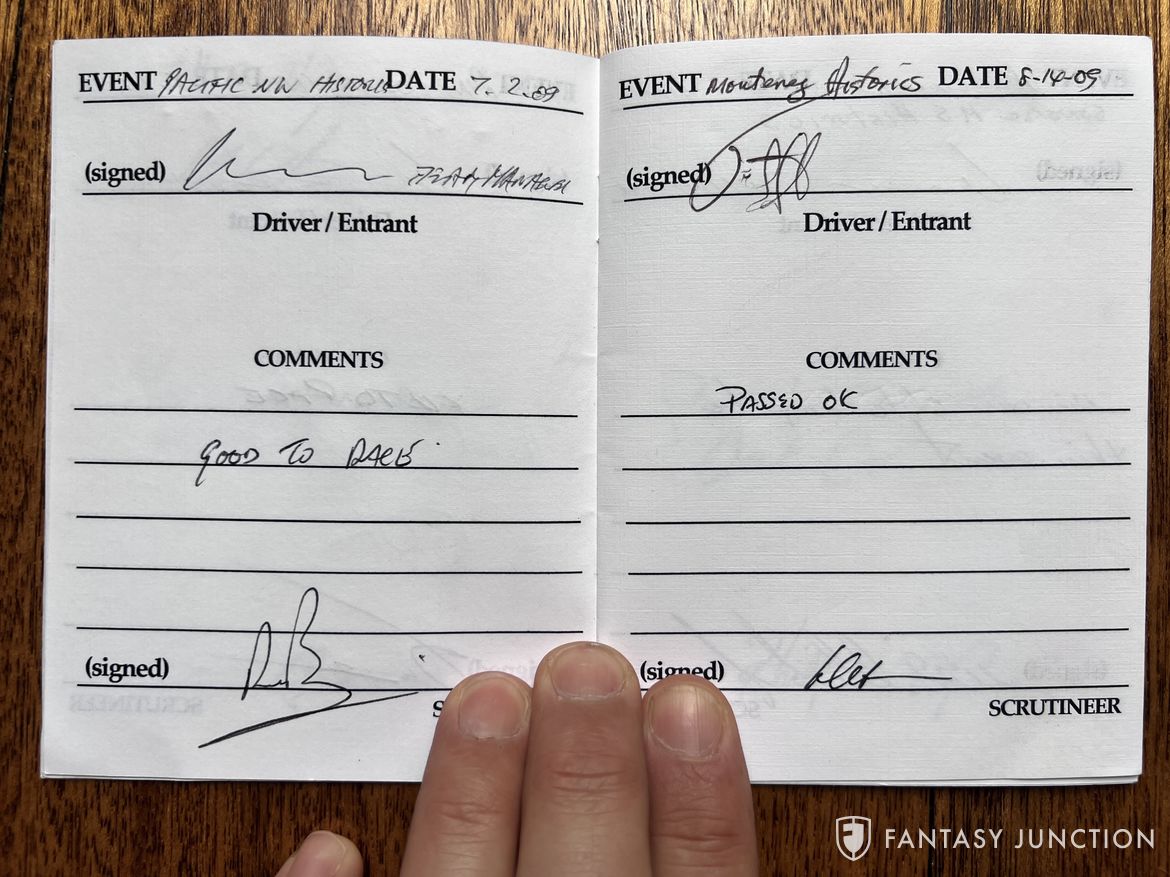 EVENT PACIFIC NW HISTORICS DATE 7.2.09
(signed) TEAM MANAGER
Driver / Entrant
COMMENTS
GOOD TO RACE
(signed)
EVENT Monterey Historics DATE 8-14-09
(signed)
Driver / Entrant
COMMENTS
PASSED OK
(signed)
SCRUTINEER
FANTASY JUNCTION